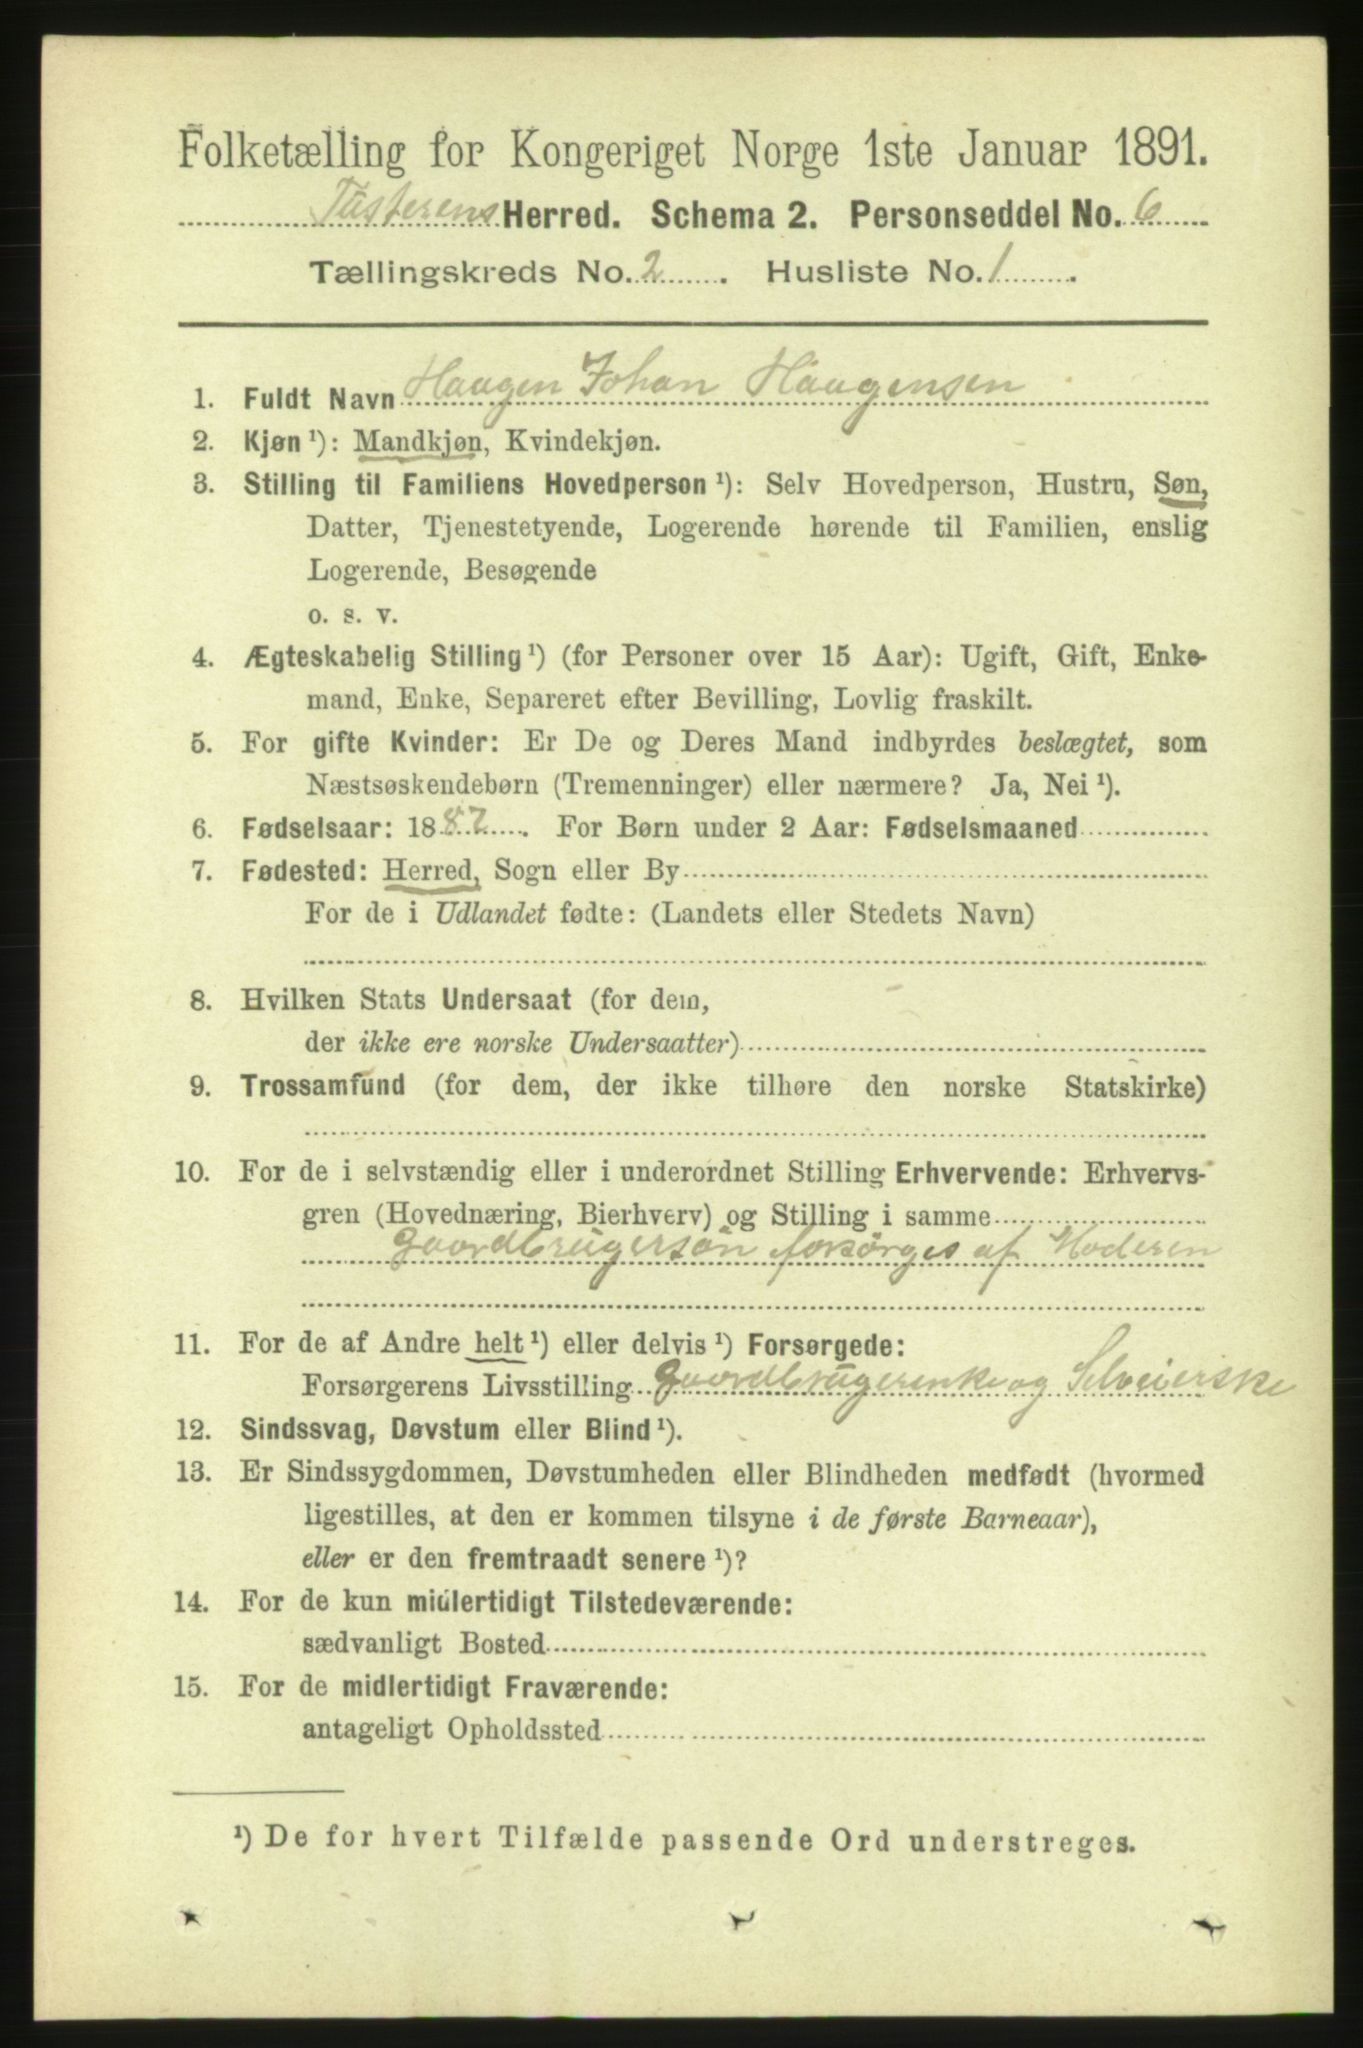 Folketælling for Kongeriget Norge 1ste Januar 1891.
Tusterens Herred. Schema 2. Personseddel No. 6
Tællingskreds No. 2. Husliste No. 1.
1. Fuldt Navn Haagen Johan Haagensen
2. Kjøn ¹): Mandkjøn, Kvindekjøn.
3. Stilling til Familiens Hovedperson ¹): Selv Hovedperson, Hustru, Søn,
Datter, Tjenestetyende, Logerende hørende til Familien, enslig
Logerende, Besøgende
o. s. v.
4. Ægteskabelig Stilling ¹) (for Personer over 15 Aar): Ugift, Gift, Enke-
mand, Enke, Separeret efter Bevilling, Lovlig fraskilt.
5. For gifte Kvinder: Er De og Deres Mand indbyrdes beslægtet, som
Næstsøskendebørn (Tremenninger) eller nærmere? Ja, Nei ¹).
6. Fødselsaar: 1882. For Børn under 2 Aar: Fødselsmaaned
7. Fødested: Herred, Sogn eller By
For de i Udlandet fødte: (Landets eller Stedets Navn)
8. Hvilken Stats Undersaat (for dem,
der ikke ere norske Undersaatter)
9. Trossamfund (for dem, der ikke tilhøre den norske Statskirke)
10. For de i selvstændig eller i underordnet Stilling Erhvervende: Erhvervs-
gren (Hovednæring, Bierhverv) og Stilling i samme
Gaardbrugersøn forsørges af Moderen
11. For de af Andre helt ¹) eller delvis ¹) Forsørgede:
Forsørgerens Livsstilling Gaardbrugerenke og Selveierske
12. Sindssvag, Døvstum eller Blind ¹).
13. Er Sindssygdommen, Døvstumheden eller Blindheden medfødt (hvormed
ligestilles, at den er kommen tilsyne i de første Barneaar),
eller er den fremtraadt senere ¹)?
14. For de kun midlertidigt Tilstedeværende:
sædvanligt Bosted
15. For de midlertidigt Fraværende:
antageligt Opholdssted
¹) De for hvert Tilfælde passende Ord understreges.